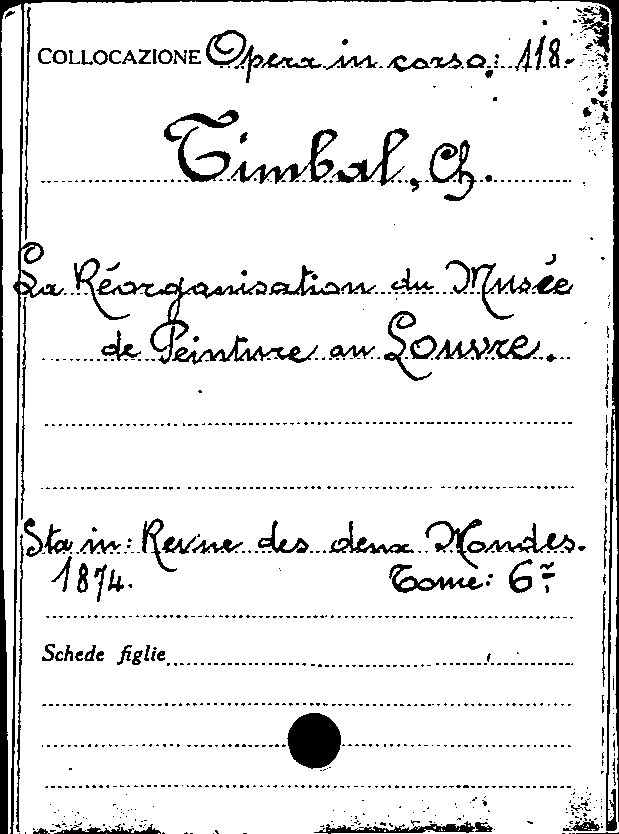 COLLOCAZIONE Opera in corso: 118.
Timbal, Ch.
La Réorganisation du Musée
de Peinture au Louvre.
Sta in: Revue des deux Mondes.
1874. Tome: 6
Schede figlie